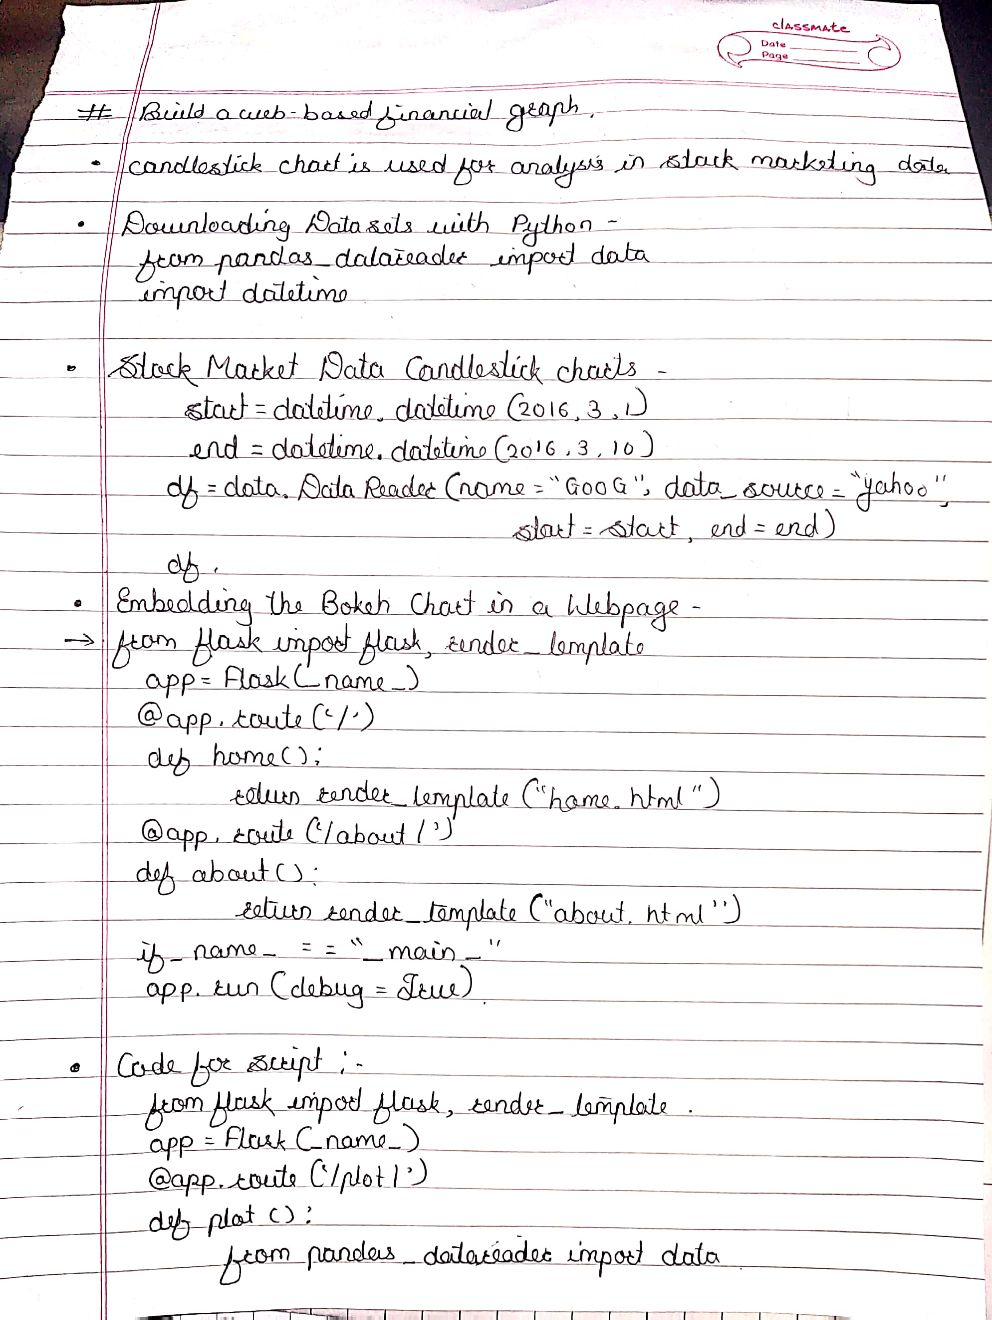 classmate
Date
Page
# Build a web-based financial graph.
• candlestick chart is used for analysis in stock marketing data
• Downloading Datasets with Python -
from pandas_datareader import data
import datetime
• Stock Market Data Candlestick charts -
start = datetime.datetime (2016, 3, 1)
end = datetime.datetime (2016, 3, 10)
df = data.DataReader (name = "GOOG", data_source = "yahoo",
start = start, end = end)
df.
• Embedding the Bokeh Chart in a Webpage -
→ from flask import flask, render_template
app = Flask(_name_)
@app.route('/')
def home();
return render_template ("home.html")
@app.route ('/about/')
def about():
return render_template ("about.html")
if _name_ = = "_main_"
app.run (debug = True)
• Code for script :-
from flask import flask, render_template.
app = Flask (_name_)
@app.route ('/plot/')
def plot ():
from pandas_datareader import data